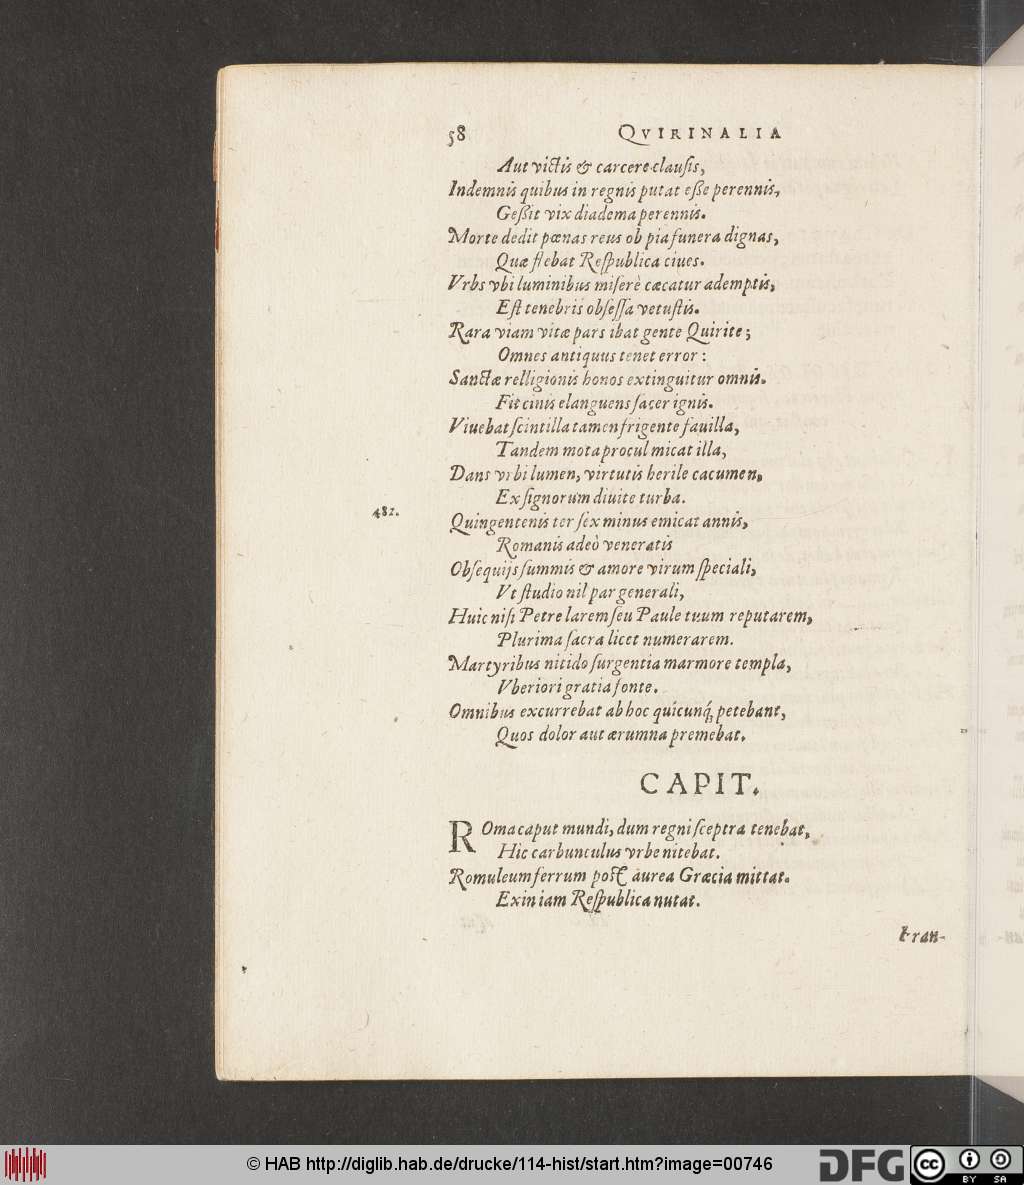 58 QVIRINALIA
Aut victis & carcere clausis,
Indemnis quibus in regnis putat eße perennis,
Geßit vix diadema perennis.
Morte dedit pœnas reus ob pia funera dignas,
Quæ flebat Respublica ciues.
Vrbs vbi luminibus miserè cæcatur ademptis,
Est tenebris obsessa vetustis.
Rara viam vitæ pars ibat gente Quirite;
Omnes antiquus tenet error:
Sanctæ relligionis honos extinguitur omnis.
Fit cinis elanguens sacer ignis.
Viuebat scintilla tamen frigente fauilla,
Tandem mota procul micat illa,
Dans vrbi lumen, virtutis herile cacumen,
Ex signorum diuite turba.
482.
Quingentenis ter sex minus emicat annis,
Romanis adeò veneratis
Obsequijs summis & amore virum speciali,
Vt studio nil par generali,
Huic nisi Petre larem seu Paule tuum reputarem,
Plurima sacra licet numerarem.
Martyribus nitido surgentia marmore templa,
Vberiori gratia fonte.
Omnibus excurrebat ab hoc quicunq́; petebant,
Quos dolor aut ærumna premebat.
CAPIT.
Roma caput mundi, dum regni sceptra tenebat,
Hic carbunculus vrbe nitebat.
Romuleum ferrum post aurea Græcia mittat.
Exin iam Respublica nutat.
Fran-
© HAB http://diglib.hab.de/drucke/114-hist/start.htm?image=00746
DFG
cc
BY SA